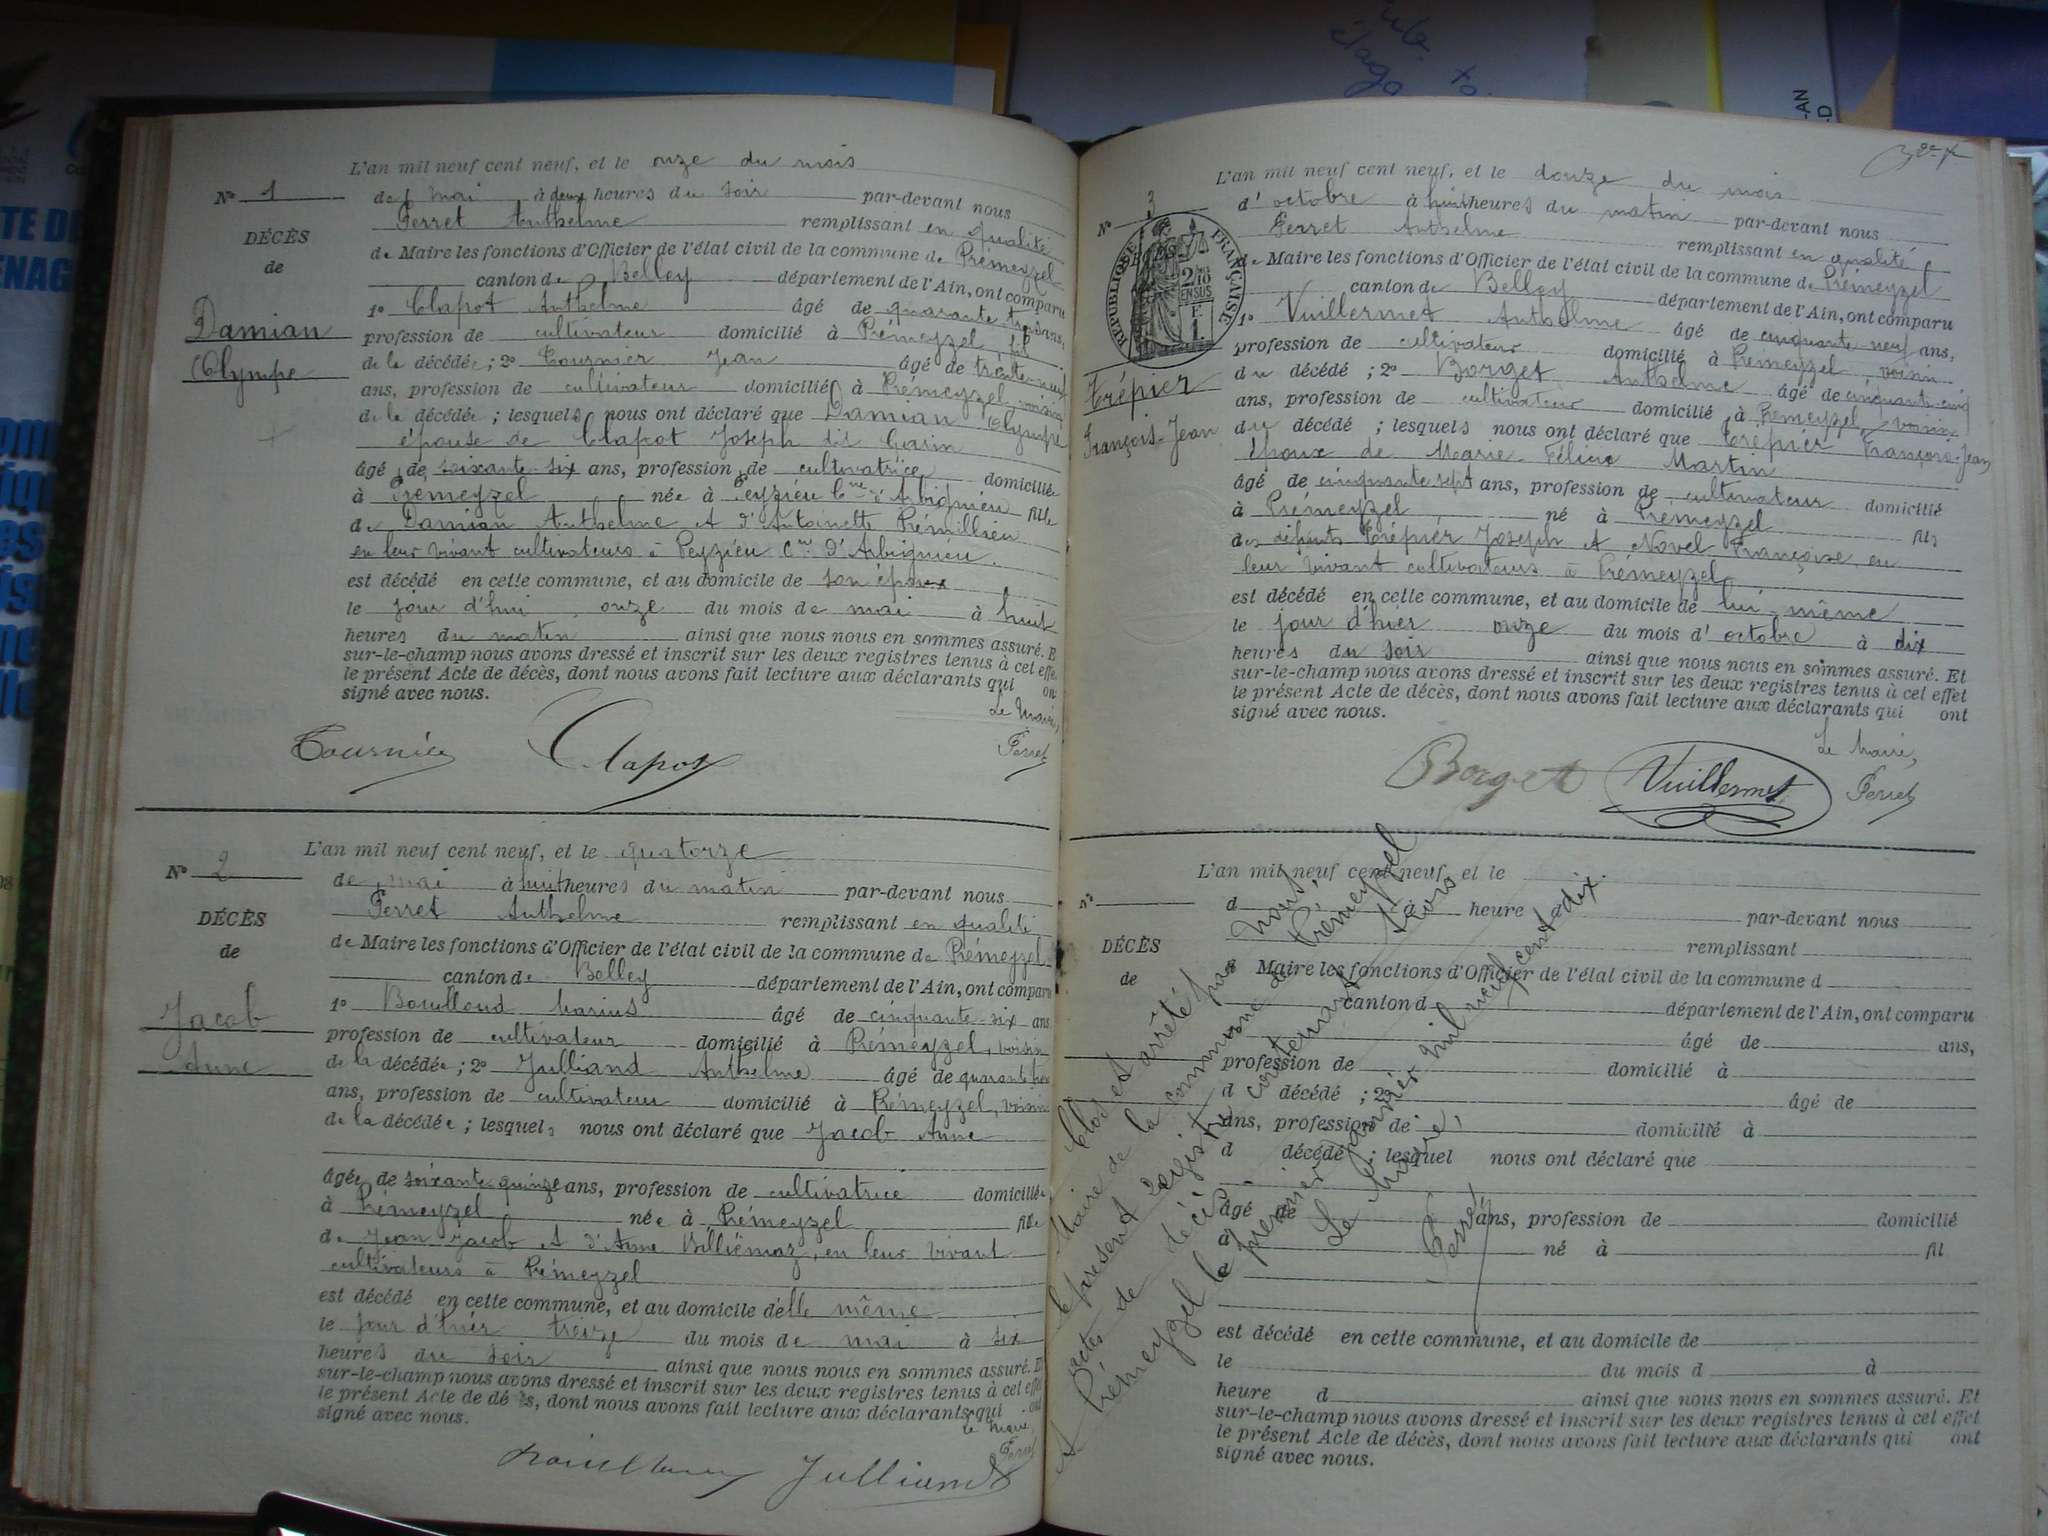 L'an mil neuf cent neuf, et le onze du mois
No 1
de mai à deux heures du soir par-devant nous
Perret Anthelme remplissant en qualité
DÉCÈS
de
de Maire les fonctions d'Officier de l'état civil de la commune de Prémeyzel
canton de Belley département de l'Ain, ont comparu
1o Clapot Anthelme âgé de quarante-trois ans,
Damian
Olympe
profession de cultivateur domicilié à Prémeyzel, fil
de la décédée ; 2o Tournier Jean âgé de trente-neuf
ans, profession de cultivateur domicilié à Prémeyzel, voisin
de la décédée ; lesquels nous ont déclaré que Damian Olympe
épouse de Clapot Joseph dit Garin
âgé de soixante-six ans, profession de cultivatrice domiciliée
à Prémeyzel née à Peyzieu Cne d'Arbignieu fille
de Damian Anthelme et d'Antoinette Prémillieu
en leur vivant cultivateurs à Peyzieu Cne d'Arbignieu.
est décédé en cette commune, et au domicile de son époux
le jour d'hui onze du mois de mai à huit
heures du matin ainsi que nous nous en sommes assuré. E
sur-le-champ nous avons dressé et inscrit sur les deux registres tenus à cet effe
le présent Acte de décès, dont nous avons fait lecture aux déclarants qui on
signé avec nous.
Le Maire,
Tournier Clapot Perret
L'an mil neuf cent neuf, et le quatorze
No 2
de mai à huit heures du matin par-devant nous
Perret Anthelme remplissant en qualité
DÉCÈS
de
de Maire les fonctions d'Officier de l'état civil de la commune de Prémeyzel
canton de Belley département de l'Ain, ont comparu
Jacob
Anne
1o Bouilloud Marius âgé de cinquante-six ans
profession de cultivateur domicilié à Prémeyzel, voisin
de la décédée ; 2o Julliand Anthelme âgé de quarante
ans, profession de cultivateur domicilié à Prémeyzel, voisin
de la décédée ; lesquels nous ont déclaré que Jacob Anne
âgée de soixante-quinze ans, profession de cultivatrice domiciliée
à Prémeyzel née à Prémeyzel fille
de Jean Jacob et d'Anne Billiémaz, en leur vivant
cultivateurs à Prémeyzel
est décédé en cette commune, et au domicile d'elle même
le jour d'hier treize du mois de mai à six
heures du soir ainsi que nous nous en sommes assuré. Et
sur-le-champ nous avons dressé et inscrit sur les deux registres tenus à cet effet
le présent Acte de décès, dont nous avons fait lecture aux déclarants qui ont
signé avec nous.
Le Maire
Perret
Bouilloud Julliand
L'an mil neuf cent neuf, et le douze du mois
No 3
d'octobre à huit heures du matin par-devant nous
Perret Anthelme remplissant en qualité
RÉPUBLIQUE FRANÇAISE
2/10mes
EN SUS
F
1
de Maire les fonctions d'Officier de l'état civil de la commune de Prémeyzel
canton de Belley département de l'Ain, ont comparu
1o Vuillermet Anthelme âgé de cinquante-neuf ans,
profession de cultivateur domicilié à Prémeyzel, voisin
Trépier
François-Jean
du décédé ; 2o Borget Anthelme âgé de cinquante-cinq
ans, profession de cultivateur domicilié à Prémeyzel, voisin
du décédé ; lesquels nous ont déclaré que Trépier François-Jean
époux de Marie Félicie Martin
âgé de cinquante sept ans, profession de cultivateur domicilié
à Prémeyzel né à Prémeyzel fils
des défunts Trépier Joseph et Novel Françoise, en
leur vivant cultivateurs à Prémeyzel
est décédé en cette commune, et au domicile de lui-même
le jour d'hier onze du mois d'octobre à dix
heures du soir ainsi que nous nous en sommes assuré. Et
sur-le-champ nous avons dressé et inscrit sur les deux registres tenus à cet effet
le présent Acte de décès, dont nous avons fait lecture aux déclarants qui ont
signé avec nous.
Le Maire,
Borget Vuillermet Perret
L'an mil neuf cent neuf, et le
No
d à heure par-devant nous
remplissant
DÉCÈS
de
d Maire les fonctions d'Officier de l'état civil de la commune d
canton d département de l'Ain, ont comparu
âgé de ans,
profession de domicilié à
d décédé ; 2o âgé de
ans, profession de domicilié à
d décédé ; lesquel nous ont déclaré que
âgé de ans, profession de domicilié
à né à fil
est décédé en cette commune, et au domicile de
le du mois d à
heure d ainsi que nous nous en sommes assuré. Et
sur-le-champ nous avons dressé et inscrit sur les deux registres tenus à cet effet
le présent Acte de décès, dont nous avons fait lecture aux déclarants qui ont
signé avec nous.
Clos et arrêté par nous,
Maire de la commune de Prémeyzel
le présent registre contenant trois
actes de décès
A Prémeyzel le premier janvier mil neuf cent dix.
Le Maire,
Perret